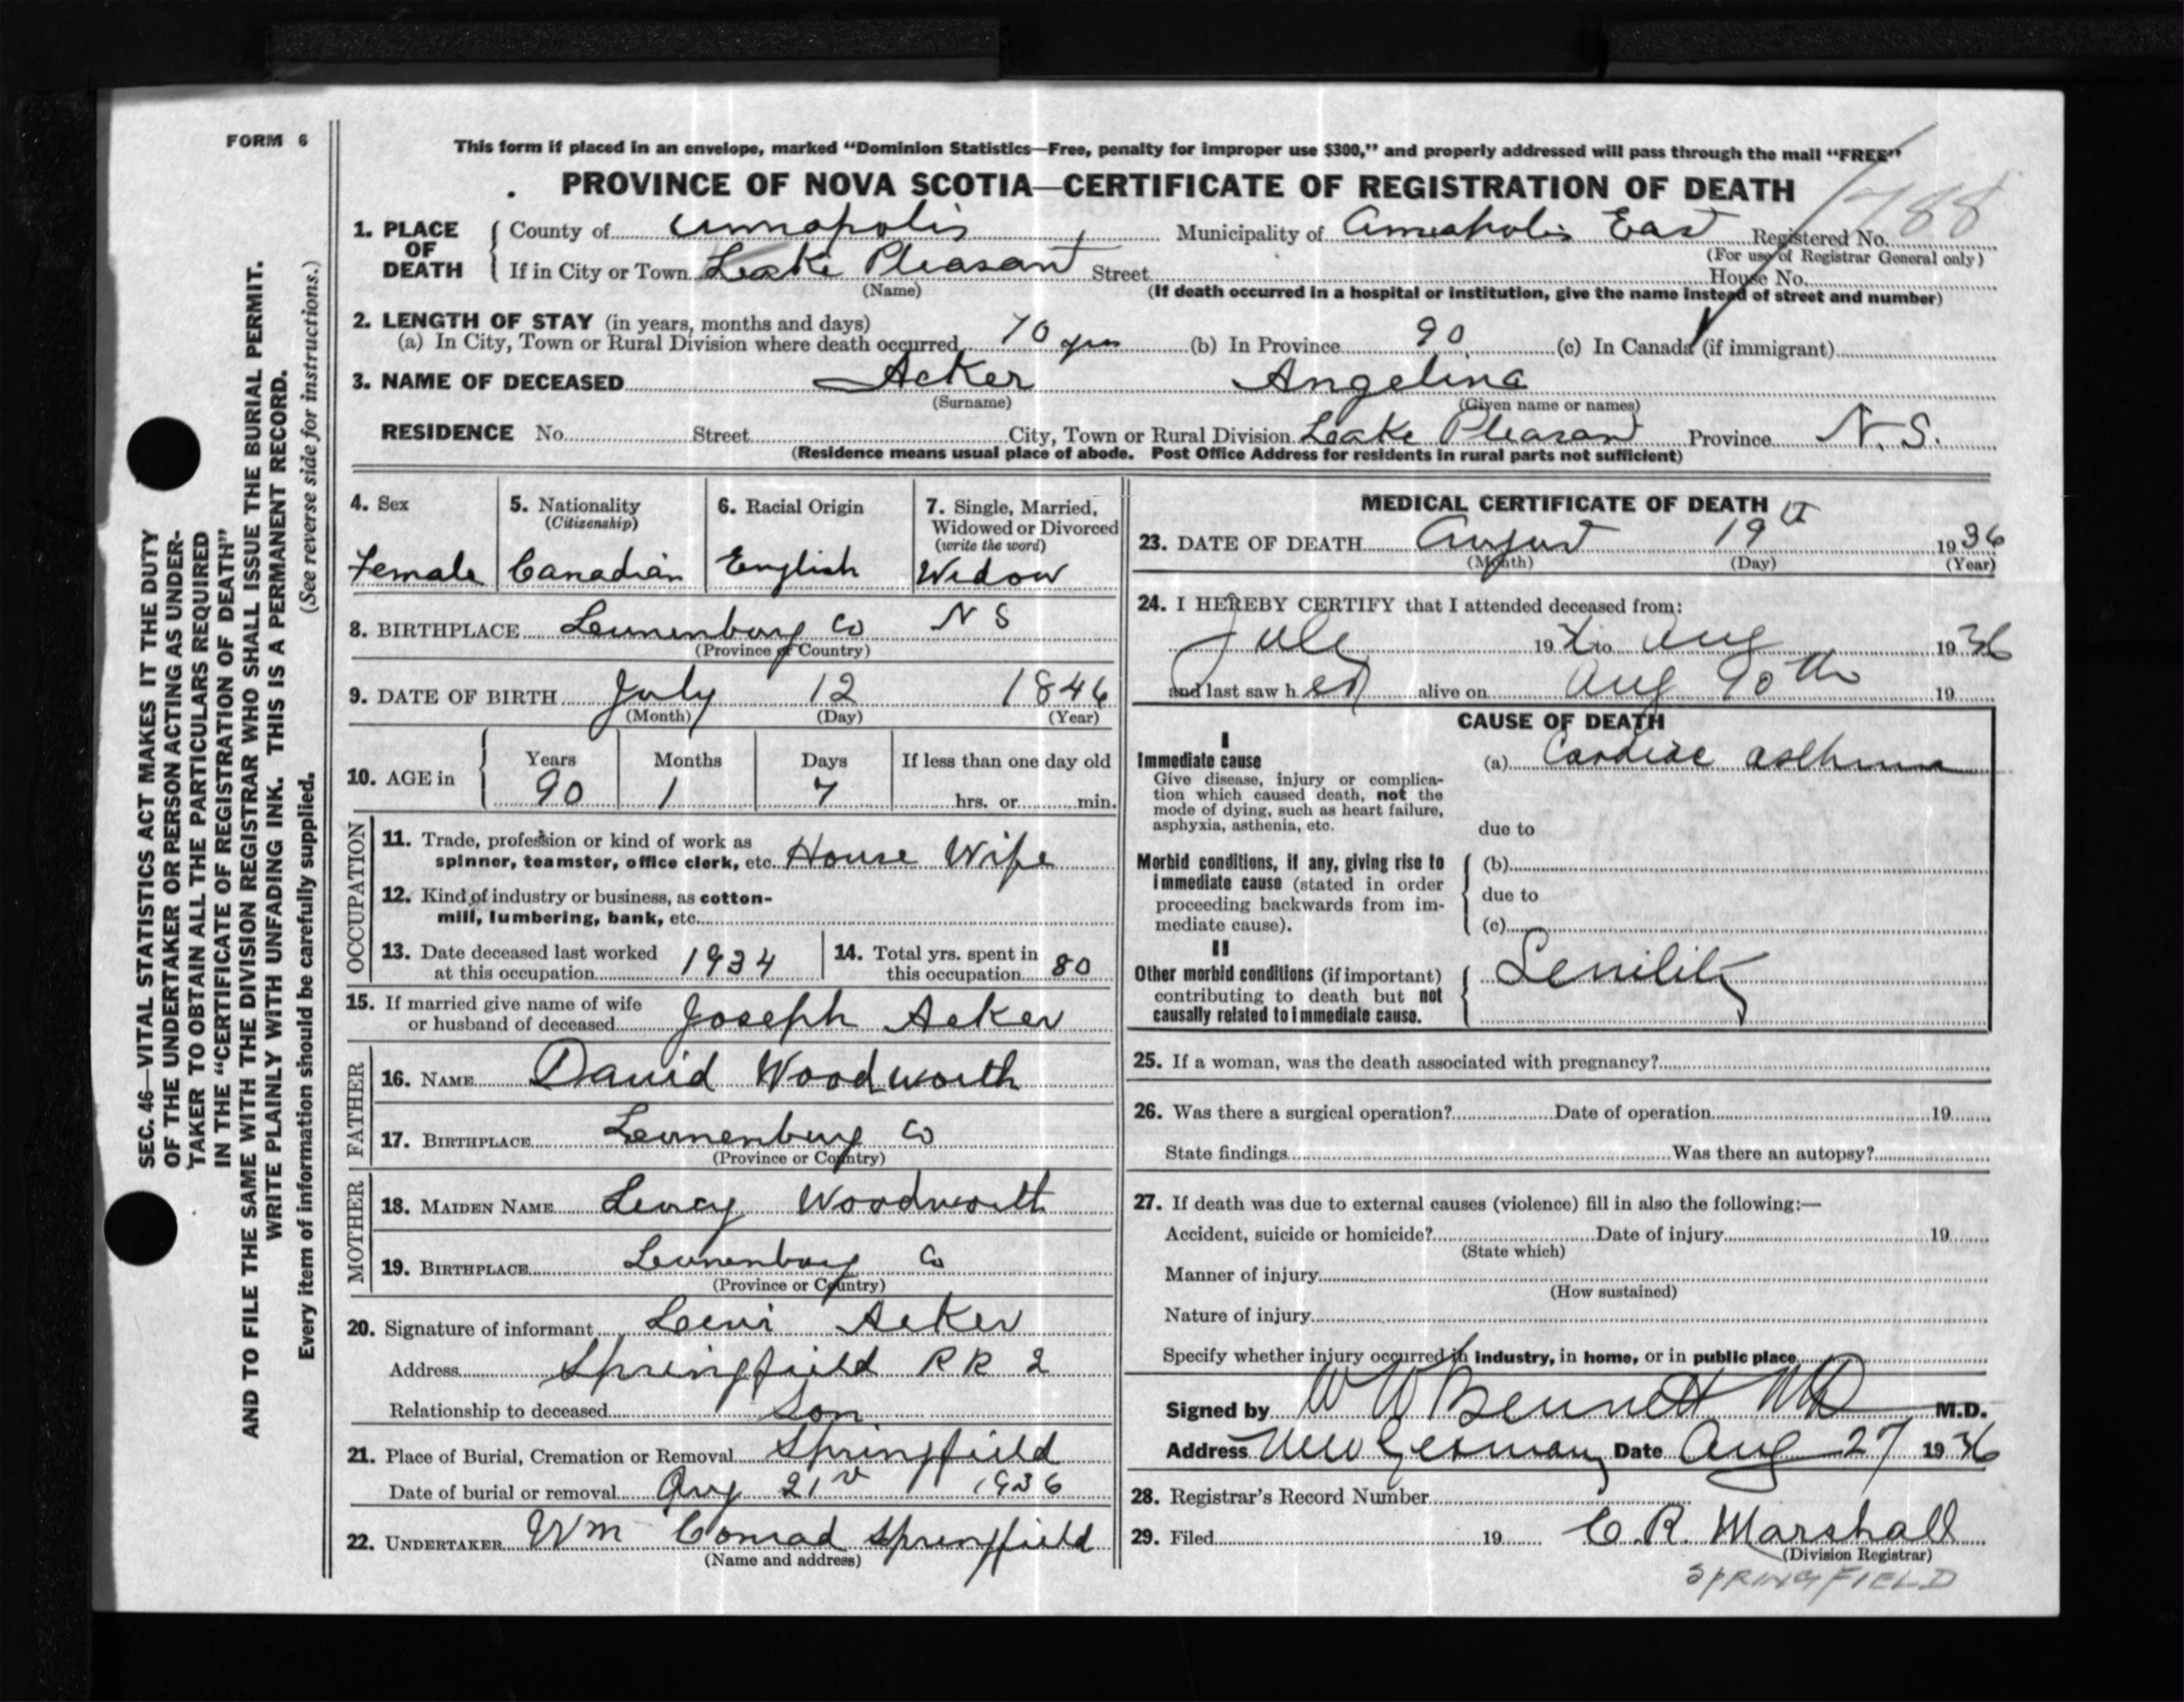 FORM 6
This form if placed in an envelope, marked “Dominion Statistics—Free, penalty for improper use $300,” and properly addressed will pass through the mail “FREE”
PROVINCE OF NOVA SCOTIA—CERTIFICATE OF REGISTRATION OF DEATH
1. PLACE OF DEATH
County of Annapolis Municipality of Annapolis East Registered No. 1788
(For use of Registrar General only)
If in City or Town Leake Pleasant Street House No.
(Name) (If death occurred in a hospital or institution, give the name instead of street and number)
2. LENGTH OF STAY (in years, months and days)
(a) In City, Town or Rural Division where death occurred 70 yrs (b) In Province 90 (c) In Canada (if immigrant)
3. NAME OF DECEASED Acker Angelina
(Surname) (Given name or names)
RESIDENCE No. Street City, Town or Rural Division Leake Pleasant Province N.S.
(Residence means usual place of abode. Post Office Address for residents in rural parts not sufficient)
4. Sex
Female
5. Nationality
(Citizenship)
Canadian
6. Racial Origin
English
7. Single, Married,
Widowed or Divorced
(write the word)
Widow
8. BIRTHPLACE Lunenburg Co N S
(Province or Country)
9. DATE OF BIRTH July 12 1846
(Month) (Day) (Year)
10. AGE in
Years Months Days If less than one day old
90 1 7 hrs. or min.
OCCUPATION
11. Trade, profession or kind of work as
spinner, teamster, office clerk, etc. House Wife
12. Kind of industry or business, as cotton-
mill, lumbering, bank, etc.
13. Date deceased last worked
at this occupation 1934
14. Total yrs. spent in
this occupation 80
15. If married give name of wife
or husband of deceased Joseph Acker
FATHER
16. NAME David Woodworth
17. BIRTHPLACE Lunenburg Co
(Province or Country)
MOTHER
18. MAIDEN NAME Leucy Woodworth
19. BIRTHPLACE Lunenburg Co
(Province or Country)
20. Signature of informant Levi Acker
Address Springfield R R 2
Relationship to deceased Son
21. Place of Burial, Cremation or Removal Springfield
Date of burial or removal Aug 21st 1936
22. UNDERTAKER Wm Conrad Springfield
(Name and address)
MEDICAL CERTIFICATE OF DEATH
23. DATE OF DEATH August 19 1936
(Month) (Day) (Year)
24. I HEREBY CERTIFY that I attended deceased from:
July 19 to Aug 1936
and last saw h er alive on Aug 19
CAUSE OF DEATH
I
Immediate cause
Give disease, injury or complica-
tion which caused death, not the
mode of dying, such as heart failure,
asphyxia, asthenia, etc.
(a) Cardiac asthma
due to
Morbid conditions, if any, giving rise to
immediate cause (stated in order
proceeding backwards from im-
mediate cause).
(b)
due to
(c)
II
Other morbid conditions (if important)
contributing to death but not
causally related to immediate cause.
Senility
25. If a woman, was the death associated with pregnancy?
26. Was there a surgical operation? Date of operation 19
State findings Was there an autopsy?
27. If death was due to external causes (violence) fill in also the following:—
Accident, suicide or homicide? Date of injury 19
(State which)
Manner of injury
(How sustained)
Nature of injury
Specify whether injury occurred in industry, in home, or in public place
Signed by W W Bennett MD M.D.
Address New Germany Date Aug 27 1936
28. Registrar's Record Number
29. Filed 19 C. R. Marshall
(Division Registrar)
SPRINGFIELD
SEC. 46—VITAL STATISTICS ACT MAKES IT THE DUTY
OF THE UNDERTAKER OR PERSON ACTING AS UNDER-
TAKER TO OBTAIN ALL THE PARTICULARS REQUIRED
IN THE “CERTIFICATE OF REGISTRATION OF DEATH”
AND TO FILE THE SAME WITH THE DIVISION REGISTRAR WHO SHALL ISSUE THE BURIAL PERMIT.
WRITE PLAINLY WITH UNFADING INK. THIS IS A PERMANENT RECORD.
Every item of information should be carefully supplied. (See reverse side for instructions.)